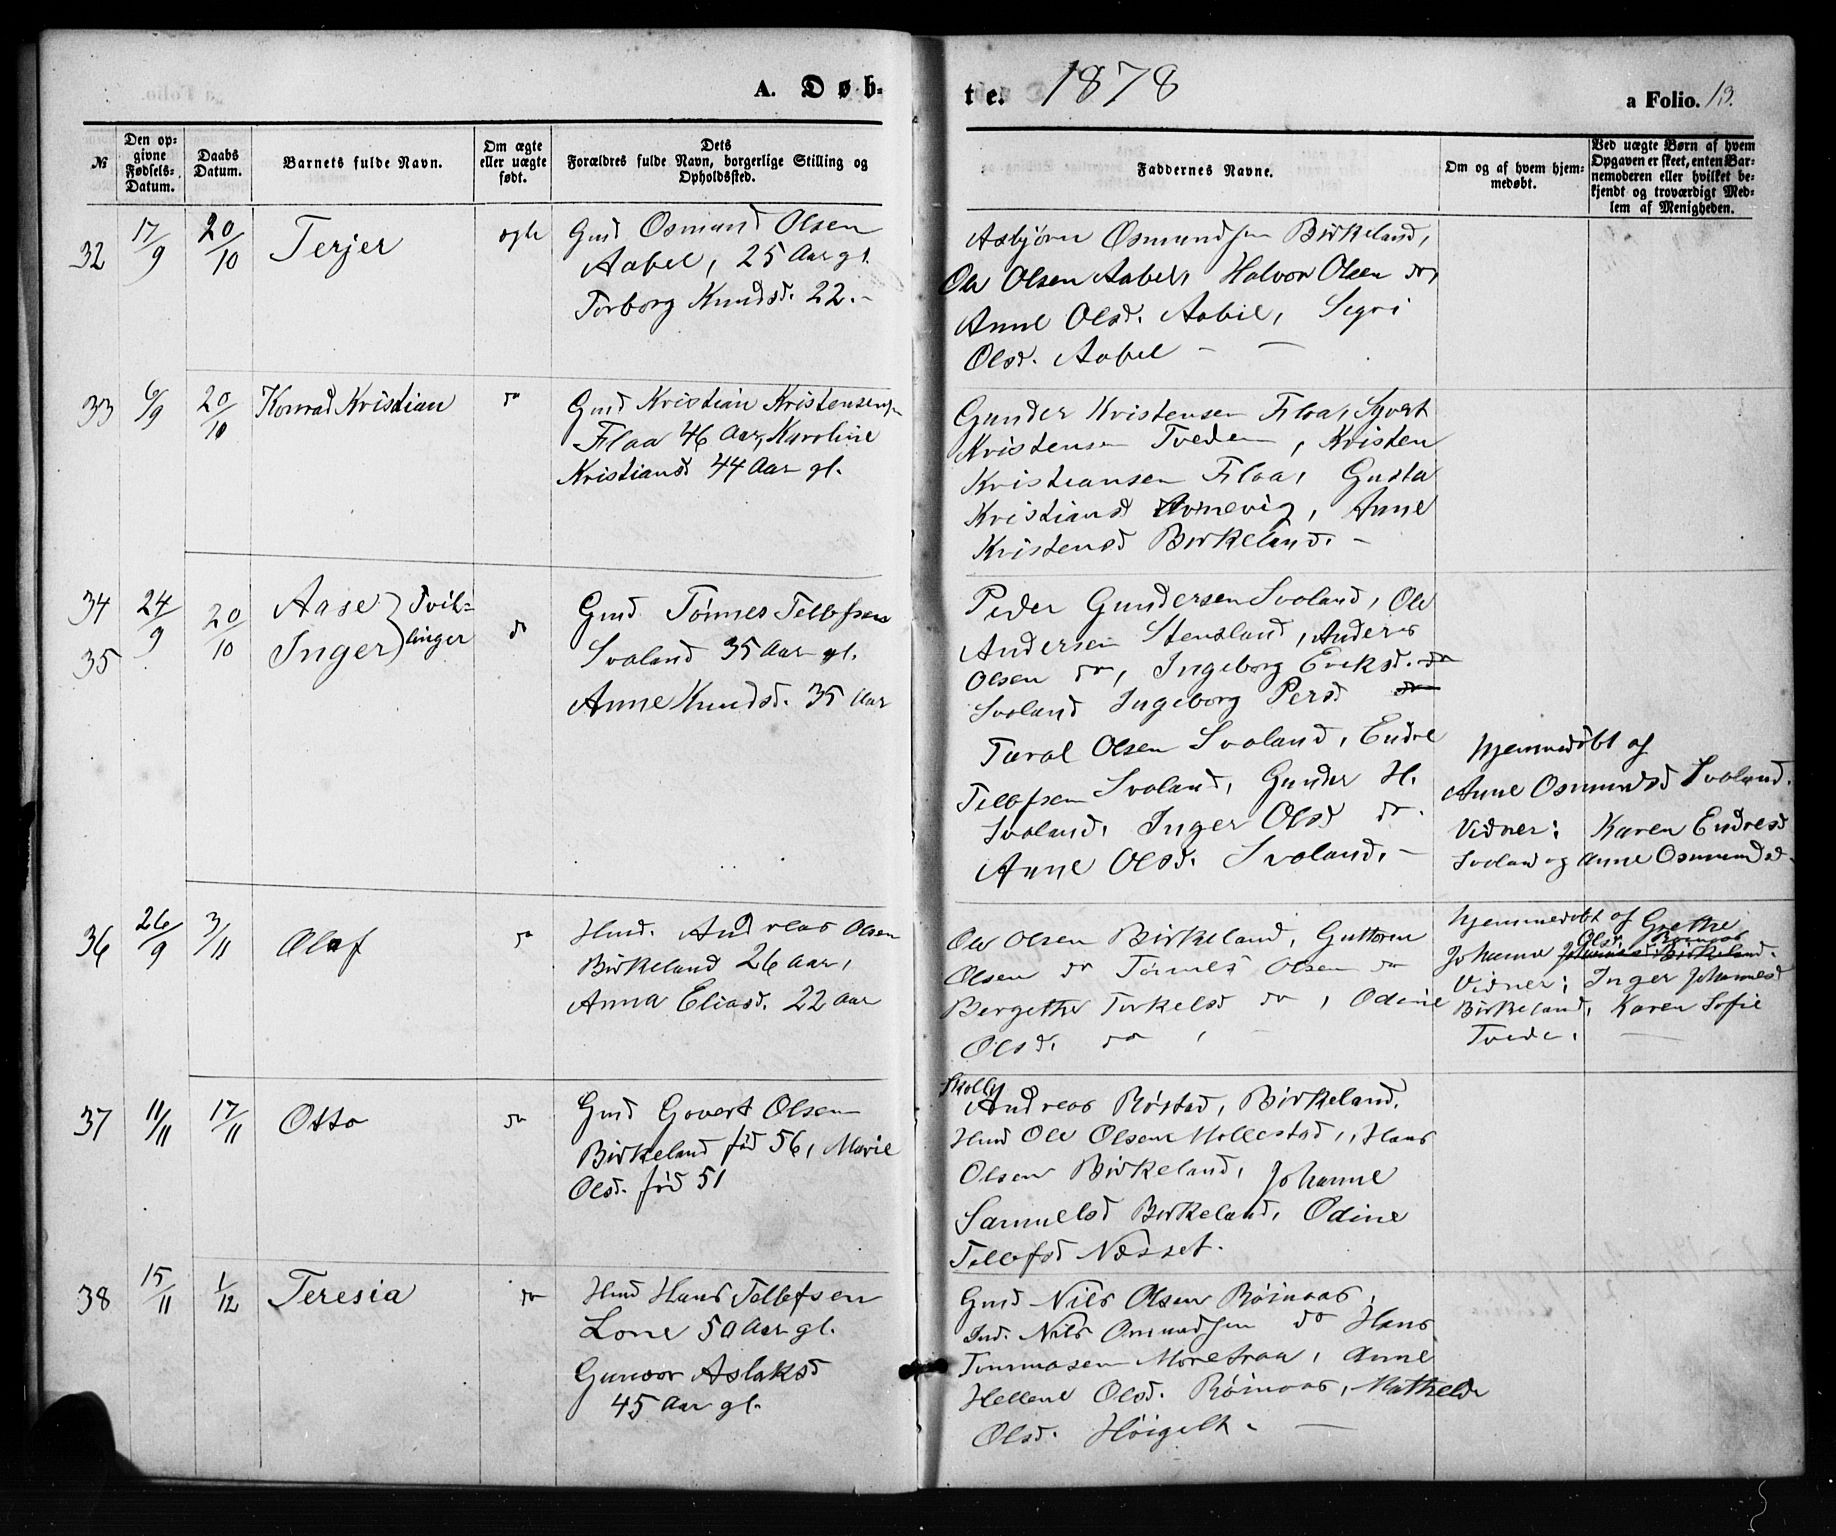 A. Døb-
te. 1878
a Folio. 13.
№
Den op-
givne
Fødsels-
Datum.
Daabs
Datum.
Barnets fulde Navn.
Om ægte
eller uægte
født.
Dets
Forældres fulde Navn, borgerlige Stilling og
Opholdssted.
Faddernes Navne.
Om og af hvem hjem-
medøbt.
Ved uægte Børn af hvem
Opgaven er skeet, enten Bar-
nemoderen eller hvilket be-
kjendt og troværdigt Med-
lem af Menigheden.
32
17/9
20/10
Terjer
ægte
Gmd Osmund Olsen
Aabel, 25 Aar gl.
Torborg Knudsd. 22.-
Asbjørn Osmundsen Birkeland,
Ole Olsen Aabel, Halvor Olsen do,
Anne Olsd. Aabel, Sigri
Olsd. Aabel
33
6/9
20/10
Konrad Kristian
do
Gmd Kristian Kristensen
Flaa 46 Aar, Karoline
Kristiansd 44 Aar gl.
Gunder Kristensen Flaa, Syvert
Kristensen Tveden, Kristen
Kristiansen Flaa, Gusta
Kristiansd, Anne
Kristensd Birkeland.
34
35
24/9
20/10
Aase } Tvil-
Inger } linger
do
Gmd Tønnes Tellefsen
Svaland 35 Aar gl.
Anne Knudsd. 35 Aar
Peder Gundersen Svaland, Ole
Andersen Stensland, Anders
Olsen do, Ingeborg Eriksd. do
Svaland Ingeborg Persd do
Taral Olsen Svaland, Endre
Tellefsen Svaland, Gunder H.
Svaland, Inger Olsd do.
Anne Olsd. Svaland.
hjemmedøbt af
Anne Osmundsd Svaland.
Vidner: Karen Endresd
Svaland og Anne Osmundsd.
36
26/9
3/11
Olaf
do
Hmd. Andreas Olsen
Birkeland 26 Aar,
Anna Eliasd. 22 Aar
Ole Olsen Birkeland, Guttorm
Olsen do Tønnes Olsen do
Bergethe Terkelsd do, Odine
Olsd. do
hjemmedøbt af Grethe
Olsd. Røinaas
Johanne Johannesd Birkeland.
Vidner: Inger Johannesd
Birkeland, Karen Sofie
Tvede.
37
11/11
17/11
Otto
do
Gmd Govert Olsen
Birkeland fød 56, Marie
Olsd. fød 51
Skolly
Andreas Røstad, Birkeland.
Hmd Ole Olsen Mollestad, Hans
Olsen Birkeland, Johanne
Samuelsd Birkeland, Odine
Tellefsd Næsset.
38
15/11
1/12
Teresia
do
Hmd Hans Tellefsen
Lone 50 Aar gl.
Gunvor Aslaksd
45 Aar gl.
Gmd Nils Olsen Røinaas,
Ind. Nils Omundsen do Hans
Tommasen Moretraa, Anne
Hellene Olsd. Røinaas, Mathelde
Olsd. Høigilt.